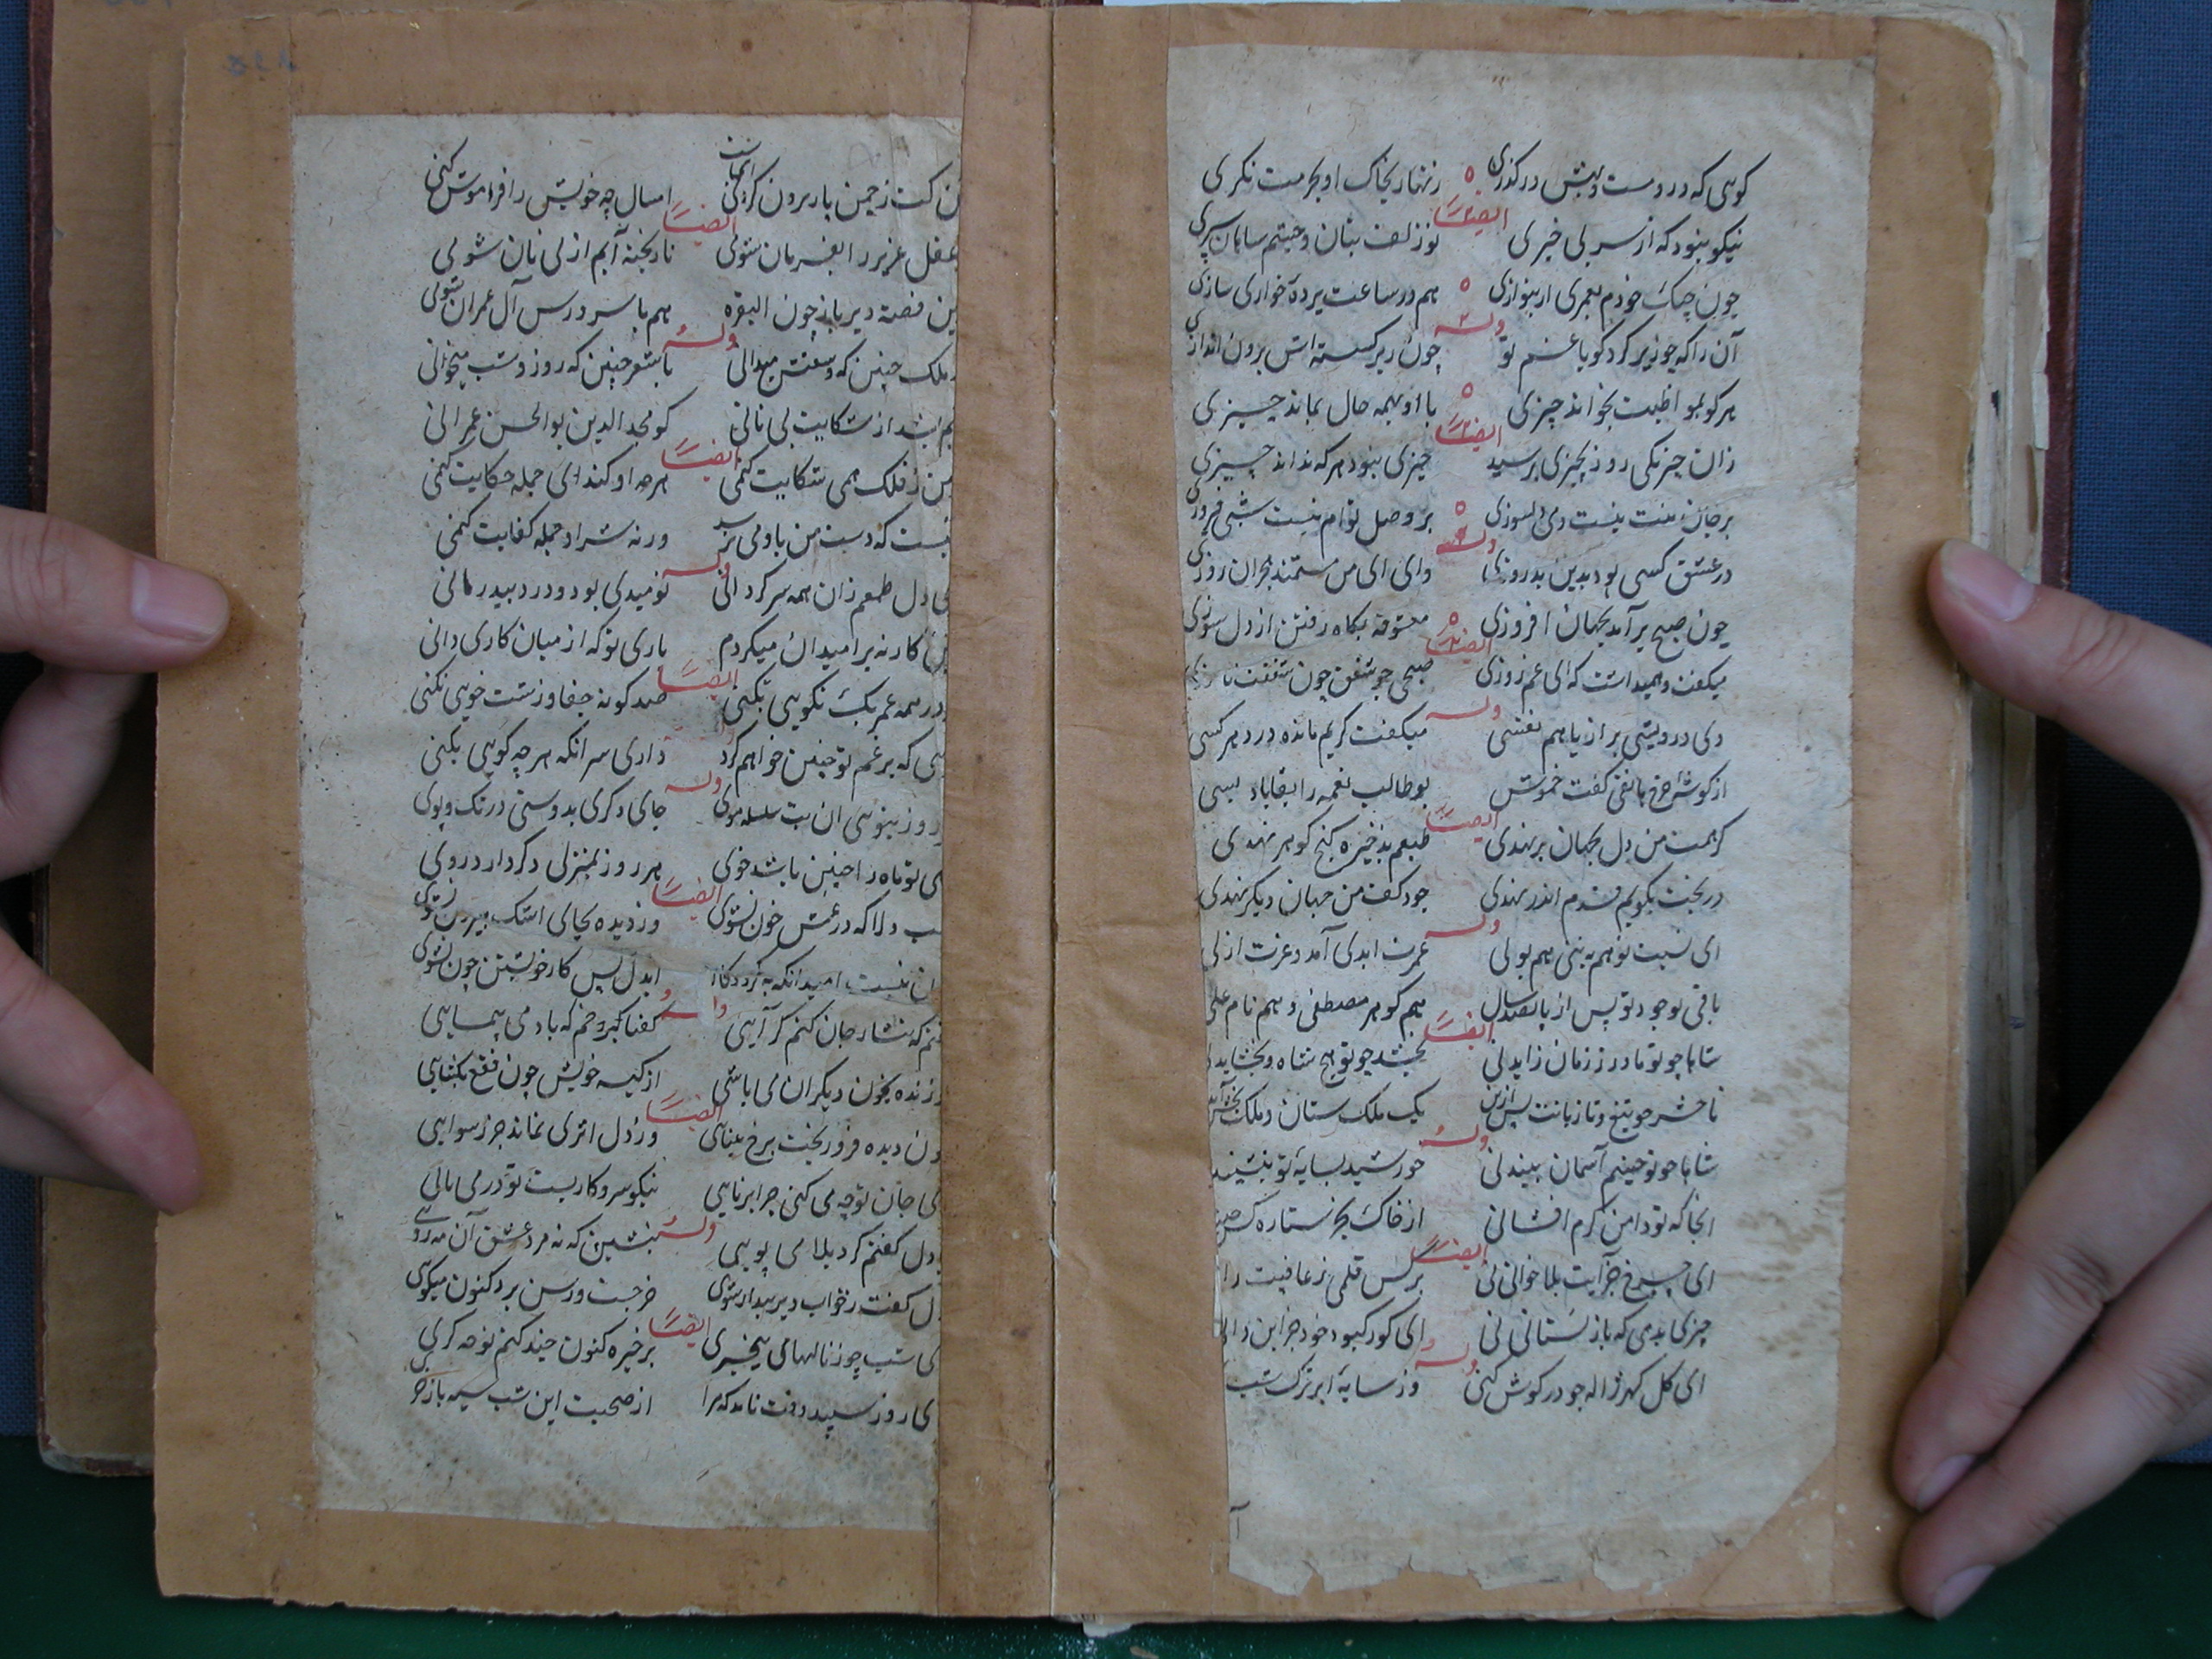 کوهی که در دوست بهش در گذری زنهار بخاک او بحرمت نگری
ایضاً
نیکو نبود که از سر بی خبری تو زلف بتان و چشم
چون چنگ خودم بعمری ار بنوازی هم در ساعت پرده خواری سازی
وله
آن را که چو زیر کرد گویا غم تو چون زیر گسسته اش برون اندازی
هر کو بمواظبت بخواند چیزی با او بهمه حال بماند چیزی
ایضاً
زان چیز یکی روز بچیزی برسید چیزی نبود هر که نداند چیزی
بر جان منت نیست دمی دلسوزی بر وصل توام نیست شبی فیروزی
وله
در عشق کسی بود بدین بد روزی وای ای من مستمند هجران روزی
چون صبح برآمد بجهان افروزی معشوقه بگاه رفتن از دل سوزی
ایضاً
میگفت و همیداشت که ای غم روزی صبحی چو شفق چون شفقت
وله
دی درویشی براز با هم نفسی میگفت کریم مانده در دهر کسی
از گوش چرخ هاتفی گفت خموش بو طالب نعمه را بقا باد بسی
ایضاً
گر همت من دل بجهان برنهدی طبعم بذخیره گنج گوهر نهدی
در بخت بگویم قدم اندر نهدی جود کف من جهان دیگر نهدی
وله
ای نسبت تو هم به نبی هم بولی عمرت ابدی آمد و عزت ازلی
باقی بوجود تو پس از پانصد سال هم گوهر مصطفی و هم نام علی
ایضاً
شاها چو تو مادر زمان زاید نی بخشد چو تو هیچ شاه و بخشاید
تا حشر چو تیغ و تازیانت پس ازین یک ملک ستان و ملک
وله
شاها چو تو چشم آسمان بیند نی خورشید بسایه تو بنشیند
انجا که تو دامن کرم افشانی از خاک بجز ستاره کس
ایضاً
ای چرخ جز آیت بلا خوانی نی بر کس قلمی ز عافیت
چیزی بدهی که باز نستانی نی ای کور کبود خود جز این
وله
ای گل گهر ژاله چو در گوش کنی وز سایه ابر ترک شب
کت ز چمن بار برون امسال چه خویش را فراموش کنی
ایضاً
عقل عزیز را بفرمان شوی نا ریخته آبم از پی نان شوی
قصه دیر باز چون البقره هم با سر درس آل عمران شوی
وله
ملک چنین که وسعتش میدانی با شعر چنین که روز و شب میخوانی
از شکایت بی نانی کو مجد الدین بو الحسن عمرانی
ایضاً
من ز فلک همی شکایت کنمی هر چه او کندای جمله حکایت کنمی
نیست که دست من باو می نرسد ورنه شر او جمله کفایت کنمی
وله
دل طمعم زان همه سرگردانی نومیدی بود و درد بیدرمانی
کار نه بر امید ان میکردم باری تو که از میان کاری دانی
ایضاً
در همه عمر یک نکویی نکنی صد گونه جفا و زشت خویی نکنی
که بر غم تو چنین خواهم کرد داری سر انکه هر چه گویی بکنی
وله
روز بنوشی ان بت سلسله موی جای دگری بدوستی در تک و پوی
تو ماه را چنین باشد خوی هر روز بمنزلی دگر دارد روی
ایضاً
دلا که در غمش خون نشوی وز دیده بجای اشک بیرون نشوی
نیست امید انکه به گردد کار ایدل پس کار خویشتن چون نشوی
وله
که نثار جان کنم گر آیی گفتا که برو خم که باد می پیمایی
زنده بخون دیگران می باشی از کیسه خویش چون فقع بگشایی
ایضاً
دیده فرو ریخت برخ بینایی وز دل اثری نماند جز رسوایی
جان تو چه می کنی چرا برنایی نیکو سر و کاریست تو در می بایی
وله
دل گفتم گرد بلا می پویی بنشین که نه مرد عشق آن مه رویی
گفت ز خواب دیر بیدار شوی خر جست و رسن برد کنون میگویی
ایضاً
شب چو ز نالهای می بیخبری بر خیره کنون چند کنم نوحه گری
ای روز سپید وقت نامد که مرا از صحبت این شب سیه باز